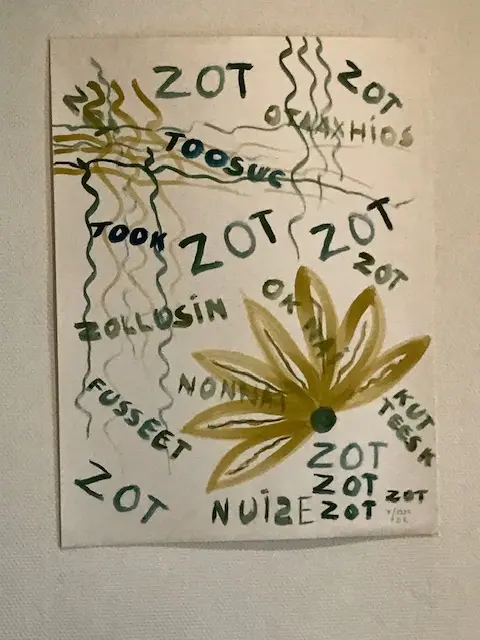 ZOT
ZOT
OTAAXHIOS
TOOSWE
TOOK
ZOT
ZOT
ZOT
ZOLLUSIN
OK
NONNAT
FUSSEET
KUT
TEESK
ZOT
ZOT
ZOT
ZOT
NUIZE
ZOT